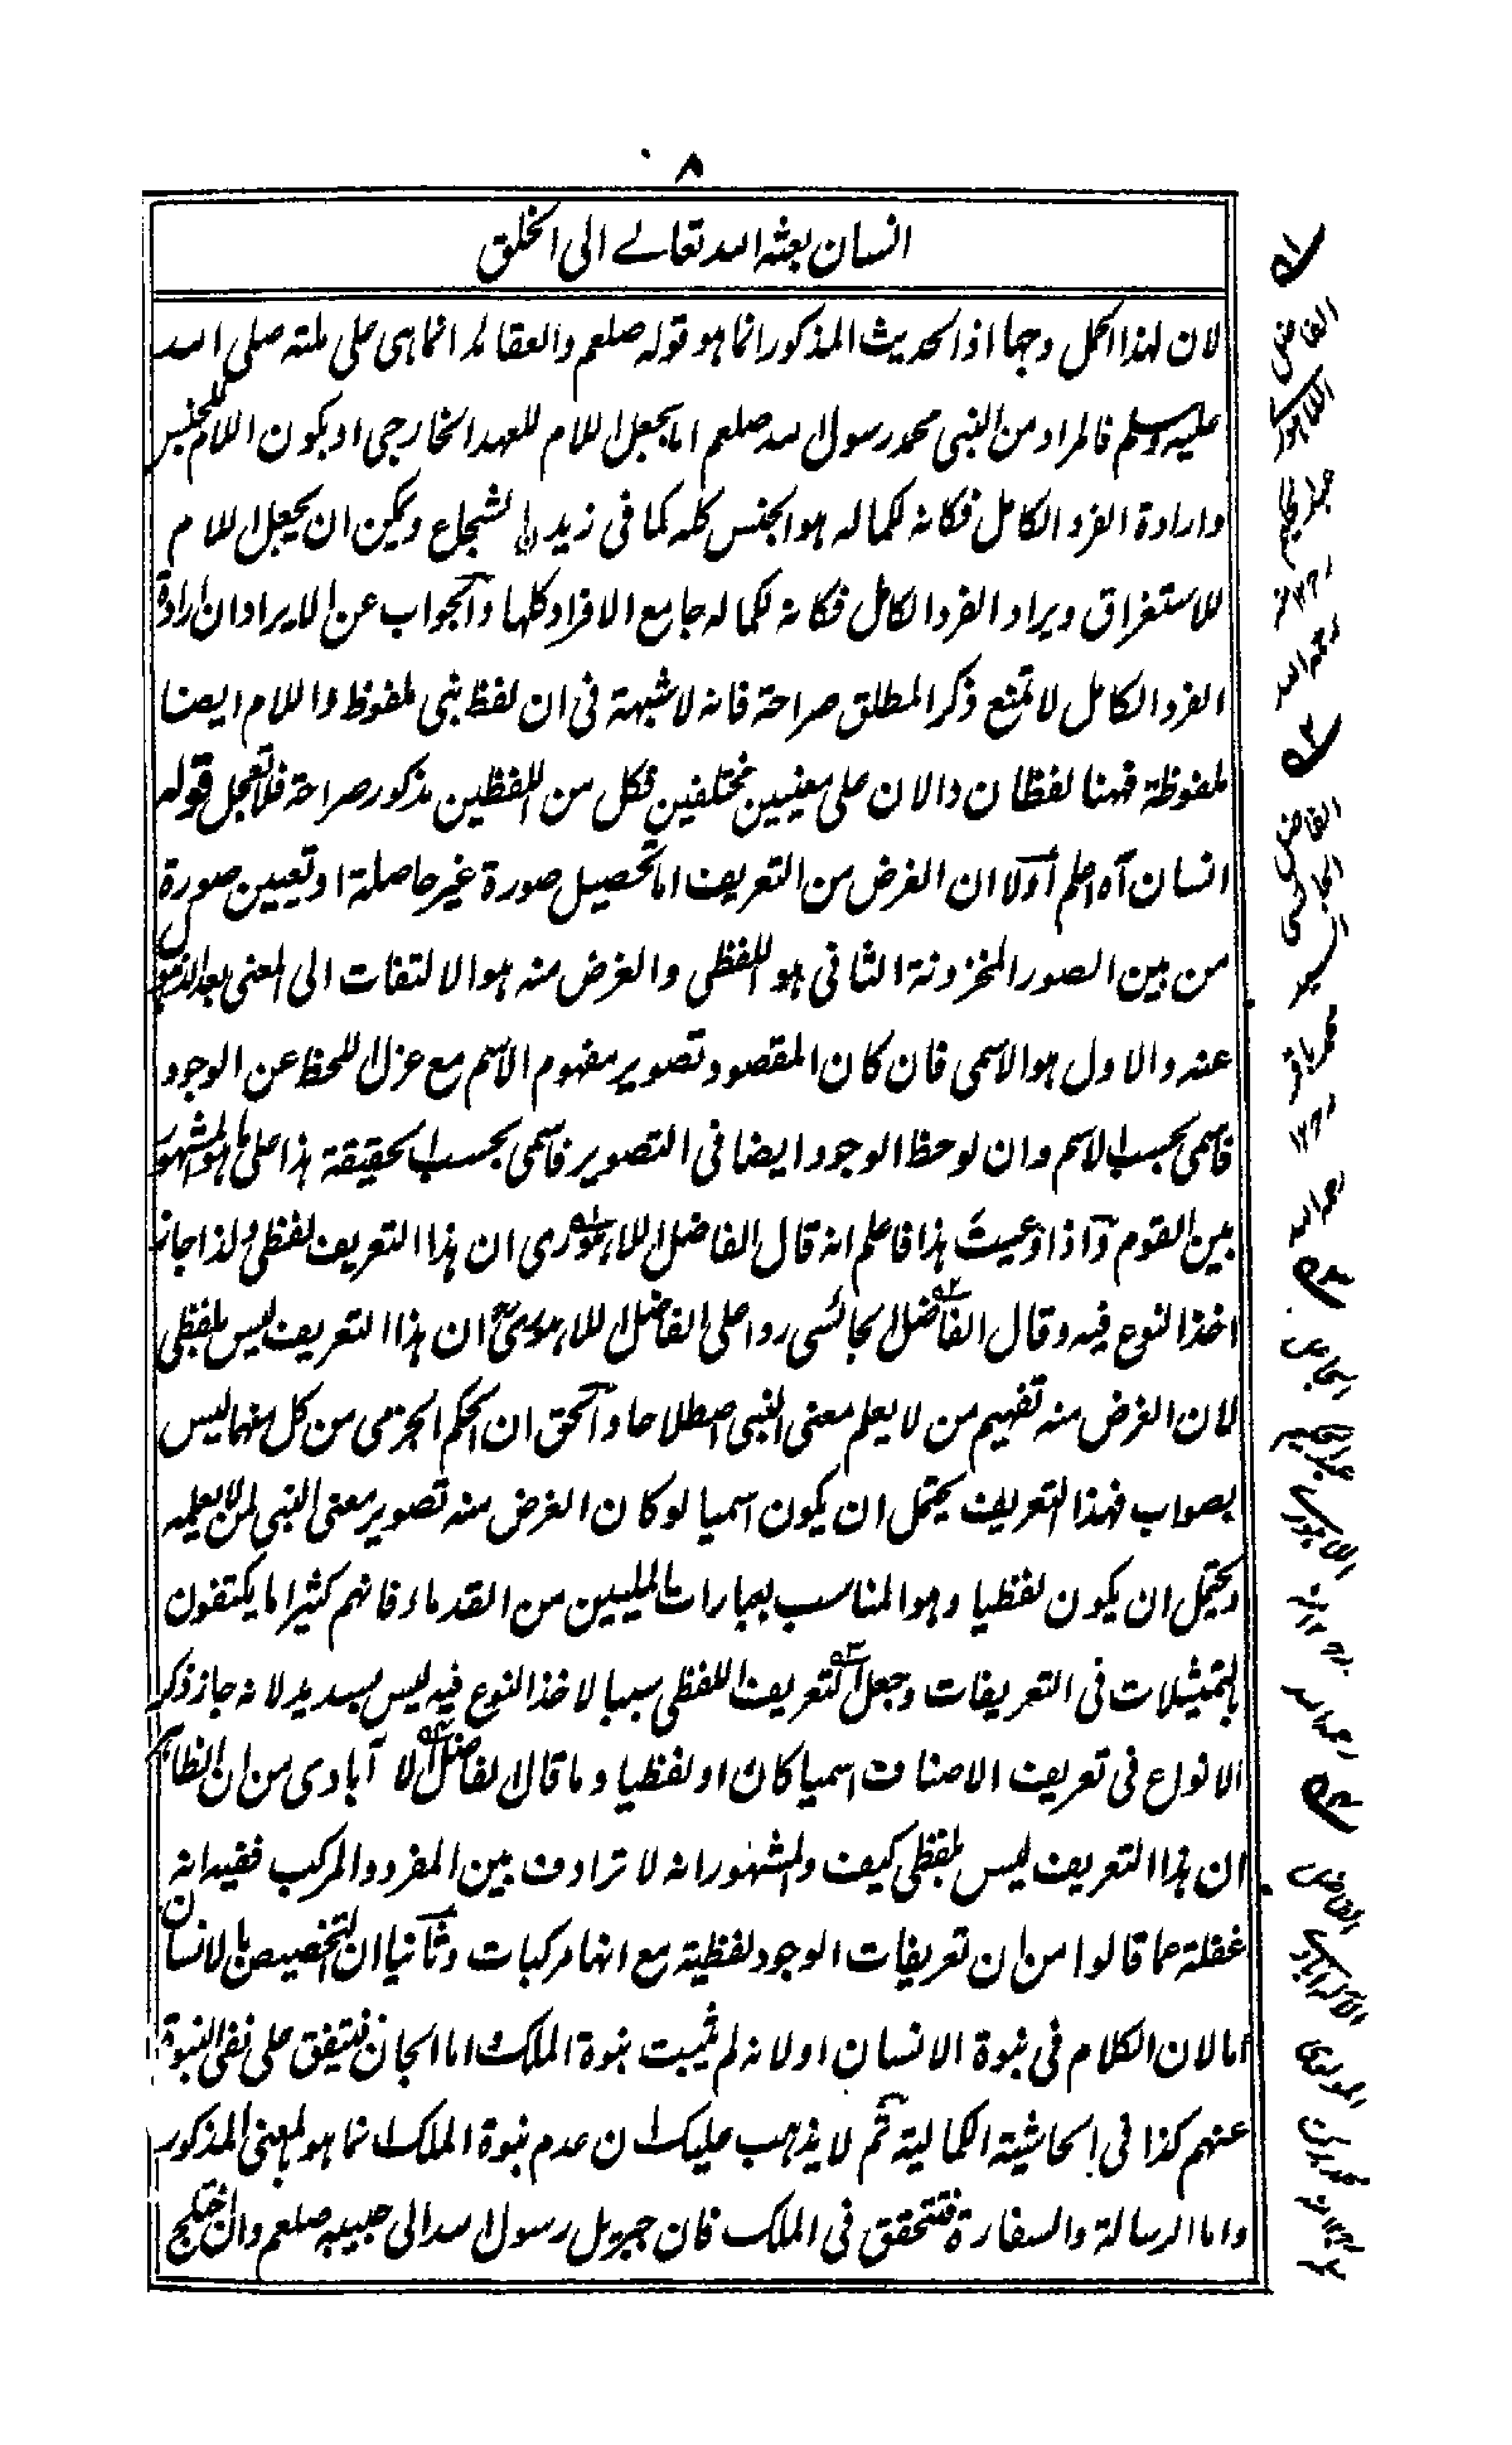 ٨
انسان بعثه الله تعالے الى الخلق
لان لهذا الحمل وجها اذ الحديث المذكور انما هو قوله صلعم والعقائد انما هى على ملته صلى الله
عليه وسلم فالمراد من النبى محمد رسول الله صلعم اما بجعل اللام للعهد الخارجى او بكون اللام للجنس
وارادة الفرد الكامل فكانه لكماله هو الجنس كله كما فى زيد الشجاع ويمكن ان يجعل اللام
للاستغراق ويراد الفرد الكامل فكانه لكماله جامع الافراد كلها والجواب عن الايراد ان ارادة
الفرد الكامل لا تمنع ذكر المطلق صراحة فانه لا شبهة فى ان لفظ نبى ملفوظ واللام ايضا
ملفوظة فهنا لفظان دالان على معنيين مختلفين فكل من اللفظين مذكور صراحة فلا تعجل قوله
انسان آه اعلم أولا ان الغرض من التعريف اما تحصيل صورة غير حاصلة او تعيين صورة
من بين الصور المخزونة الثانى هو اللفظى والغرض منه هو الالتفات الى المعنى بعد الذهول
عنه والاول هو الاسمى فان كان المقصود تصوير مفهوم الاسم مع عزل اللحظ عن الوجود
فاسمى بحسب الاسم وان لوحظ الوجود ايضا فى التصوير فاسمى بحسب الحقيقة هذا على ما هو المشهور
بين القوم وآذا وعيت هذا فاعلم انه قال الفاضل اللاهورى ان هذا التعريف لفظى ولذا جاز
اخذ النوع فيه وقال الفاضل الجائسى ردا على الفاضل اللاهورى ان هذا التعريف ليس بلفظى
لان الغرض منه تفهيم من لا يعلم معنى النبى اصطلاحا والحق ان الحكم الجزمى من كل منهما ليس
بصواب فهذا التعريف يحتمل ان يكون اسميا لو كان الغرض منه تصوير معنى النبى لمن لا يعلمه
ويحتمل ان يكون لفظيا وهو المناسب بعبارات المليين من القدماء فانهم كثيرا ما يكتفون
بالتمثيلات فى التعريفات وجعل التعريف اللفظى سببا لاخذ النوع فيه ليس بسديد لانه جاز ذكر
الانواع فى تعريف الاصناف اسميا كان او لفظيا وما قال الفاضل الا آبادى من ان الظاهر
ان هذا التعريف ليس بلفظى كيف والمشهور انه لا ترادف بين المفرد والمركب ففيه انه
غفلة عما قالوا من ان تعريفات الوجود لفظية مع انها مركبات وثانيا ان التخصيص بالانسان
اما لان الكلام فى نبوة الانسان او لانه لم يثبت نبوة الملك واما الجان فيتفق على نفى النبوة
عنهم كذا فى الحاشية الكمالية ثم لا يذهب عليك ان عدم نبوة الملك انما هو بالمعنى المذكور
واما الرسالة والسفارة فتحقق فى الملك فان جبريل رسول الله الى حبيبه صلعم وان اختلج
الفاضل
اللاهورى
عبد الحكيم
رحمه الله
الفاضل
الجائسى
سيد
محمد باقر
رحمه الله